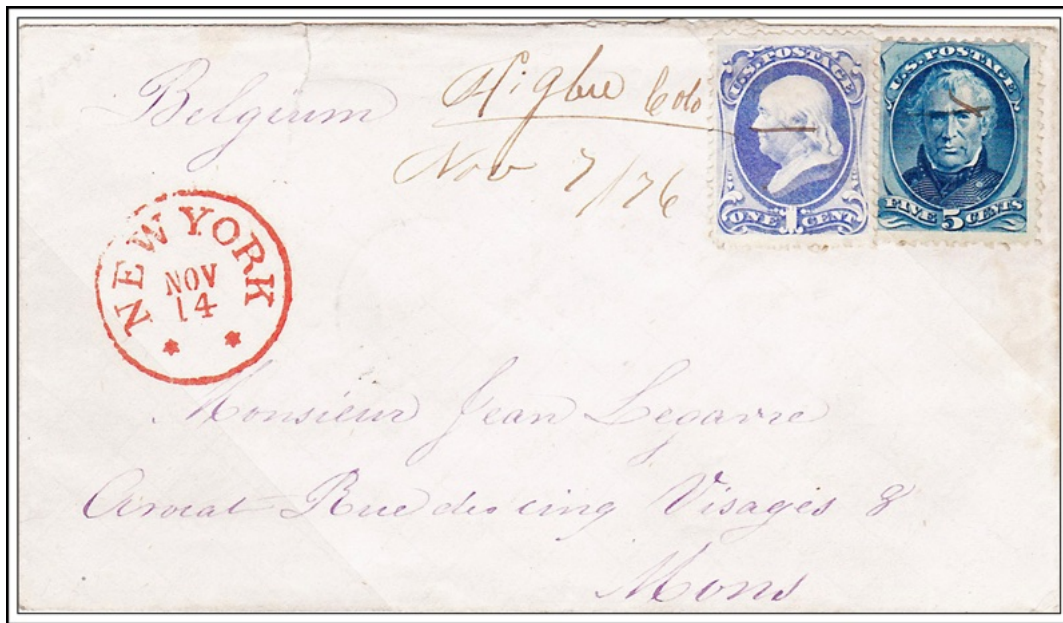 Belgium
Higbee Colo
Nov 7/76
U.S. POSTAGE
ONE 1 CENT
U.S. POSTAGE
FIVE 5 CENTS
NEW YORK
NOV
14
Monsieur Jean Legavre
Avocat - Rue des cinq Visages 8
Mons